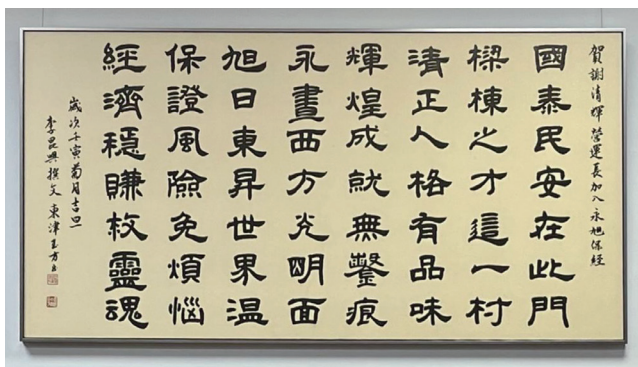 賀謝清輝營運長加入永旭保經
國泰民安在此門
樑棟之才這一村
清正人格有品味
輝煌成就無鑿痕
永晝西方光明面
旭日東昇世界温
保證風險免煩惱
經濟穩賺救靈魂
歲次壬寅菊月吉旦
李昆興撰文 東津王方